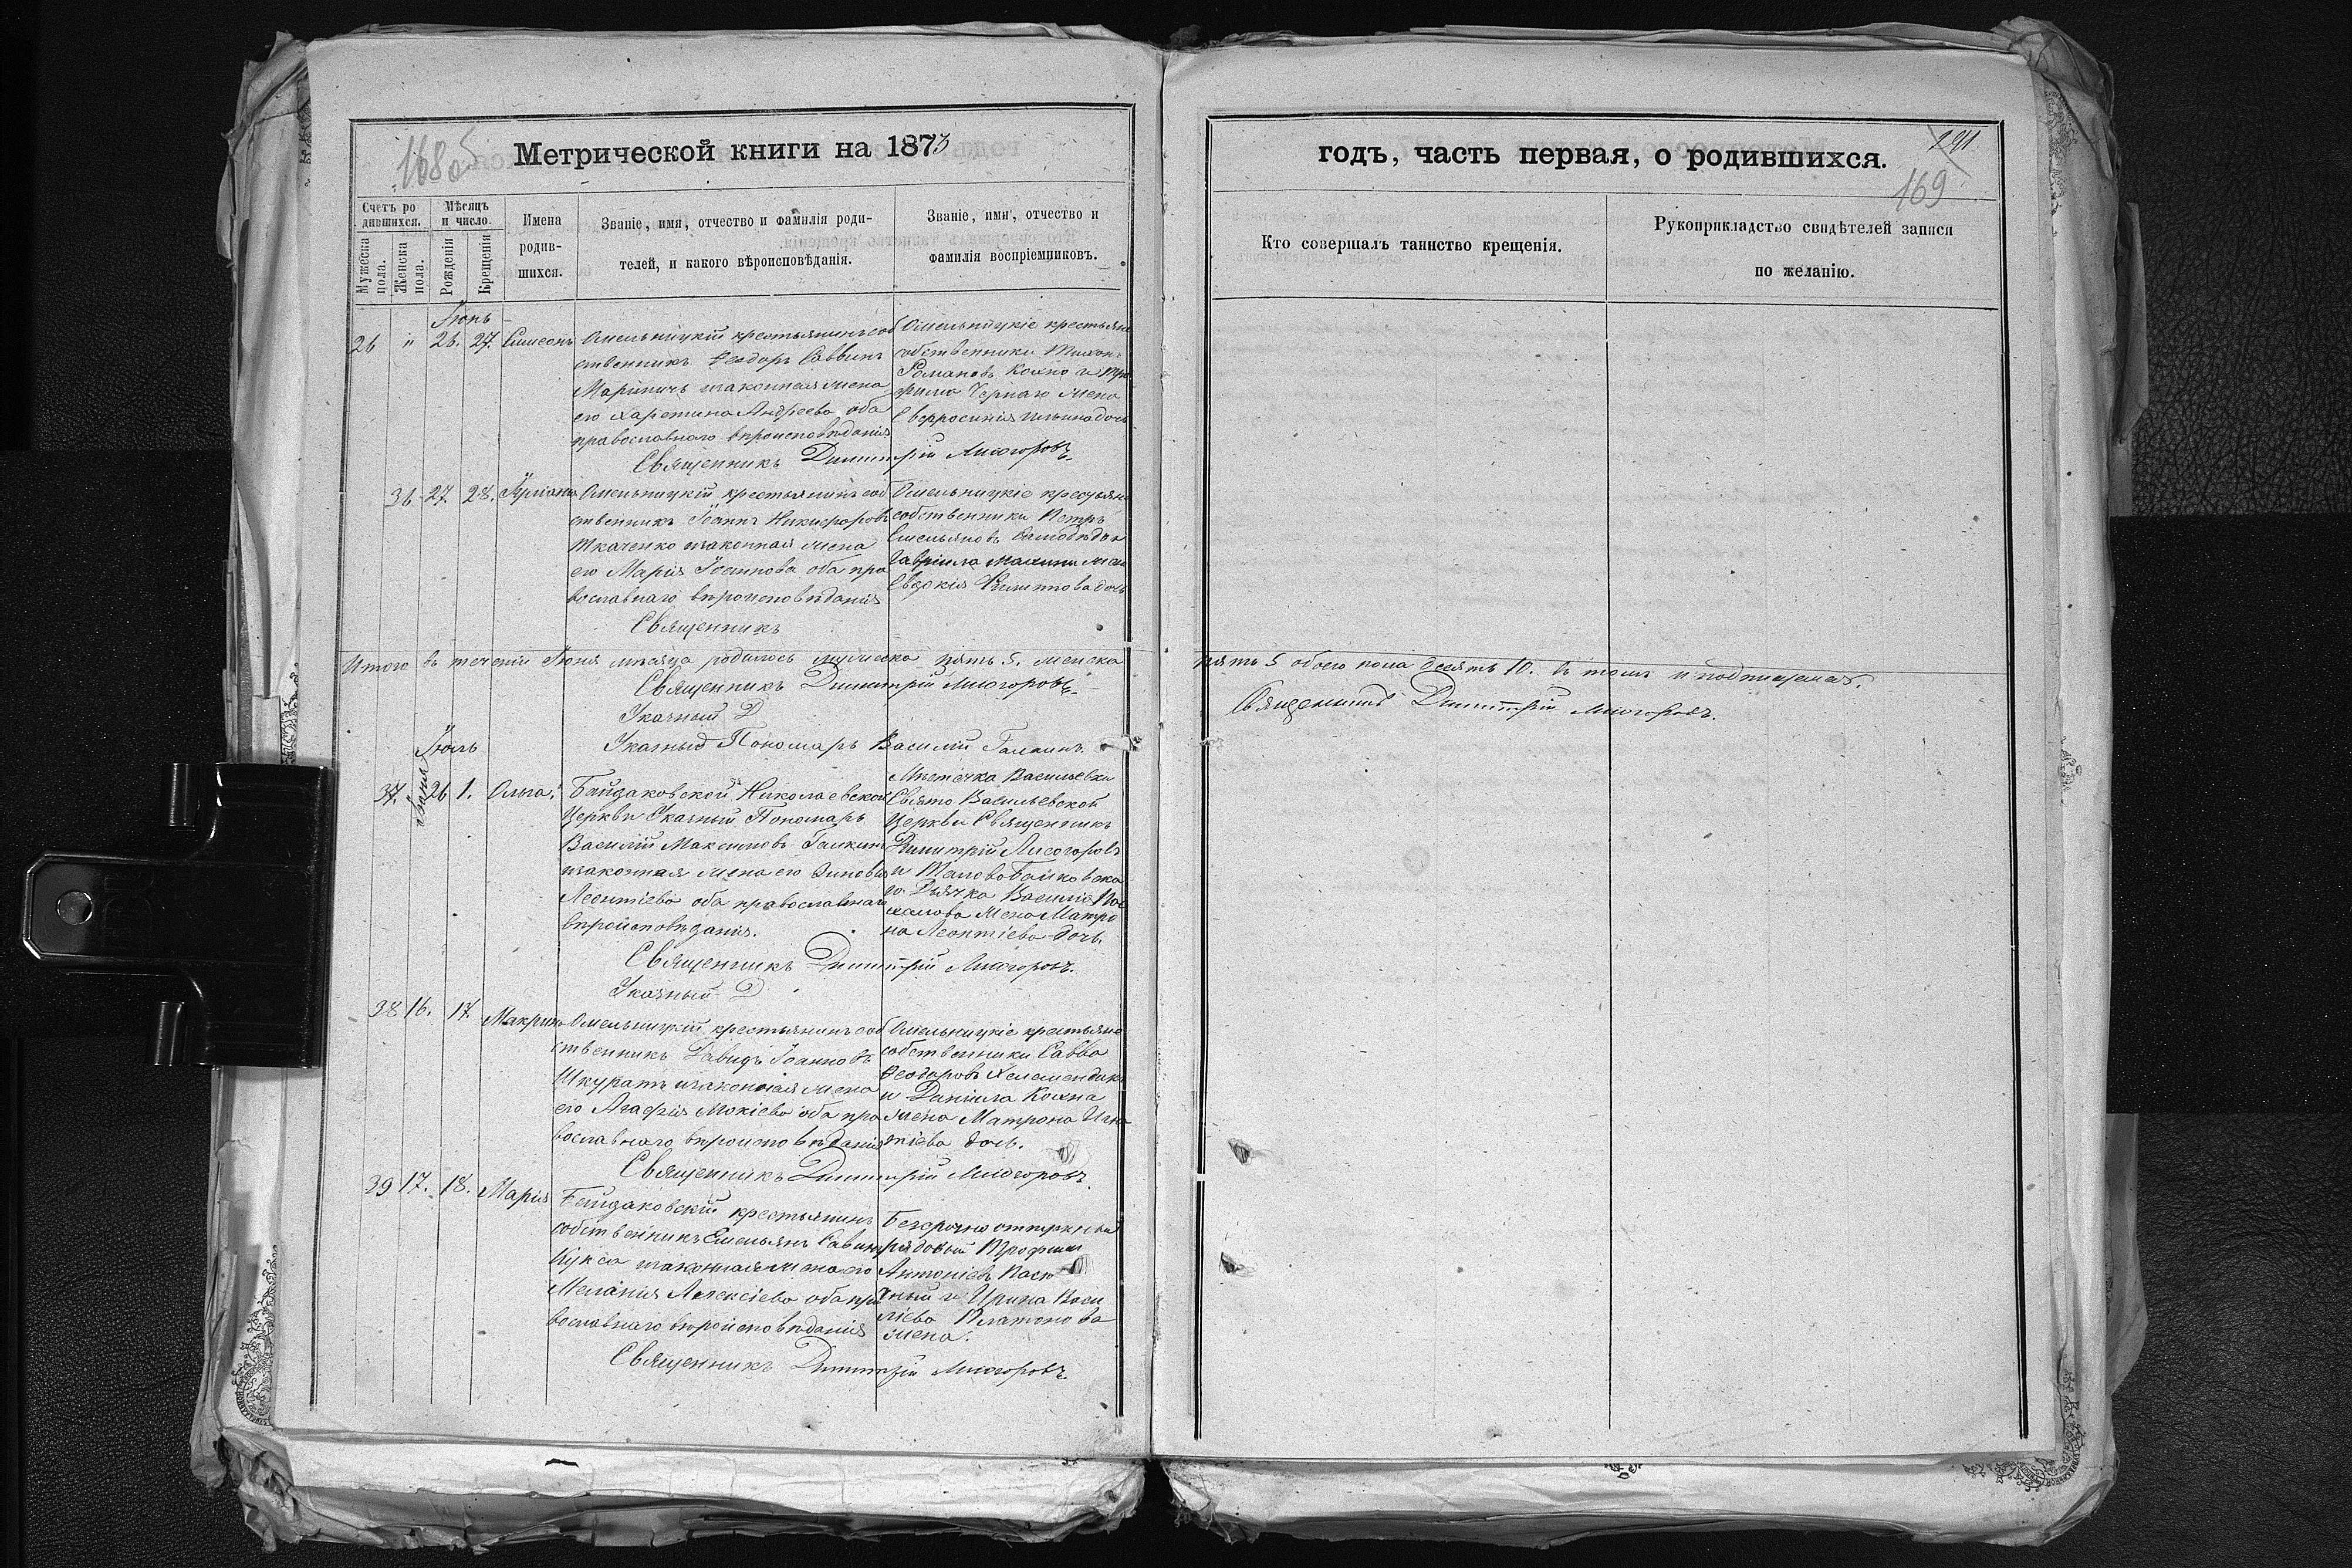 168 об
Метрической книги на 1873
Счетъ ро
дившихся.
Мѣсяцъ
и число.
Мужеска
пола.
Женска
пола.
Рожденія
Крещенія
Имена
родив-
шихся.
Званіе, имя, отчество и фамилія роди-
телей, и какого вѣроисповѣданія.
Званіе, имя, отчество и
фамилія воспріемниковъ.
Іюнь
26 " 26. 27. Симеонъ
Омельницкій крестьянинъ соб
ственникъ Феодоръ Саввинъ
законная жена
его Харетина Андреева оба
православнаго вѣроисповѣданія
Омельницкіе крестьяне
собственники Тихонъ
Романовъ Кохно и Тро
фима жена
Евфросинія Ильина дочь
Священникъ Димитрій Лисогоровъ.
36 27. 28.
Омельницкій крестьянинъ соб
ственникъ Іоаннъ Никифоровъ
Ткаченко законная жена
его Марія Іоаннова оба пра
вославнаго вѣроисповѣданія
Омельницкіе крестьяне
собственники Петръ
Емельяновъ
Гавріила Махини жена
Евдокія Филиппова дочь
Священникъ
Итого въ теченіи Іюня мѣсяца родилось мужеска пять 5. женска
Священникъ Димитрій Лисогоровъ.
Указный Д
Указный Пономарь Василій Галкинъ.
Іюль
37. Іюня 26 1. Ольга.
Байдаковской Николаевской
Церкви Указный Пономарь
Василій Максимовъ Галкинъ
законная жена его Зиновія
Леонтіева оба православнаго
вѣроисповѣданія.
Мѣстечка Васильевки
Свято Васильевской
Церкви Священникъ
Димитрій Лисогоровъ
и
го Дьячка Василія
жена Матро
на Леонтіева дочь.
Священникъ Димитрій Лисогоровъ.
Указный Д
38 16. 17. Макрина
Омельницкій крестьянинъ соб
ственникъ Давидъ Іоанновъ
Шкуратъ законная жена
его Агафія Мокіева оба пра
вославнаго вѣроисповѣданія
Омельницкіе крестьяне
собственники Савва
Феодоровъ
и Даніила Кохна
жена Матрона Игна
тіева дочь.
Священникъ Димитрій Лисогоровъ.
39 17. 18. Марія
Байдаковскій крестьянинъ
собственникъ Емельянъ Савинъ
Кукса законная жена его
Меланія Алексіева оба пра
вославнаго вѣроисповѣданія
Безсрочно отпускной
рядовой Трофимъ
Антоніевъ
и Ирина Васи
ліева Платонова
жена.
Священникъ Димитрій Лисогоровъ.
годъ, часть первая, о родившихся.
291
169
Кто совершалъ таинство крещенія.
Рукоприкладство свидѣтелей записи
по желанію.
пять 5 обоего пола десять 10. въ томъ и подписуемся.
Священникъ Димитрій Лисогоровъ.